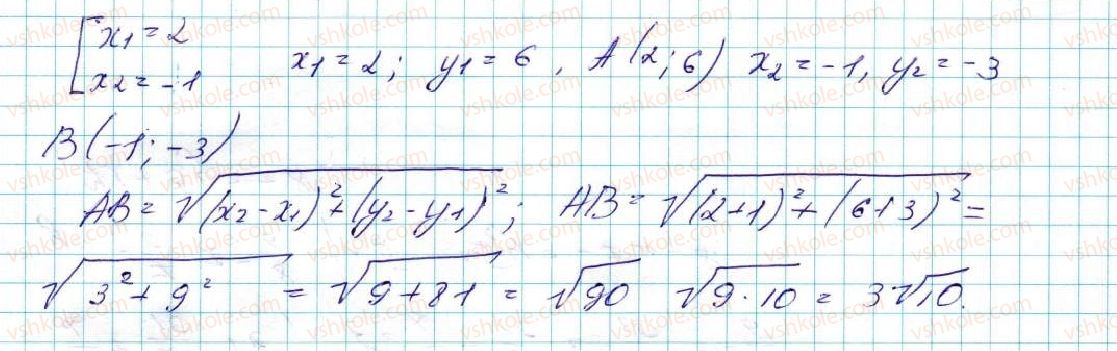 [ x₁ = 2
x₂ = -1   x₁ = 2; y₁ = 6, A(2; 6) x₂ = -1, y₂ = -3
B(-1; -3)
AB = √((x₂ - x₁)² + (y₂ - y₁)²); AB = √((2+1)² + (6+3)²) =
√(3² + 9²) = √(9+81) = √90 √(9·10) = 3√10.